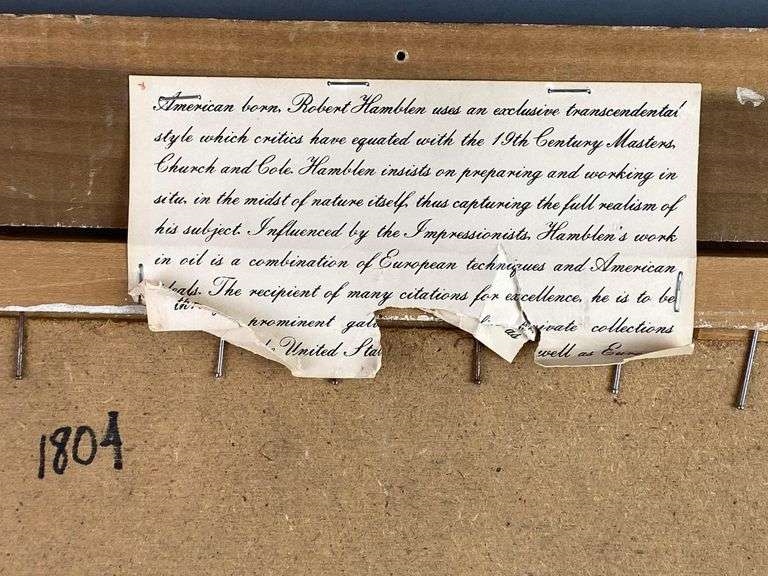 American born, Robert Hamblen uses an exclusive transcendental
style which critics have equated with the 19th Century Masters,
Church and Cole. Hamblen insists on preparing and working in
situ, in the midst of nature itself, thus capturing the full realism of
his subject. Influenced by the Impressionists, Hamblen's work
in oil is a combination of European techniques and American
The recipient of many citations for excellence, he is to be
prominent private collections
United well as
1804